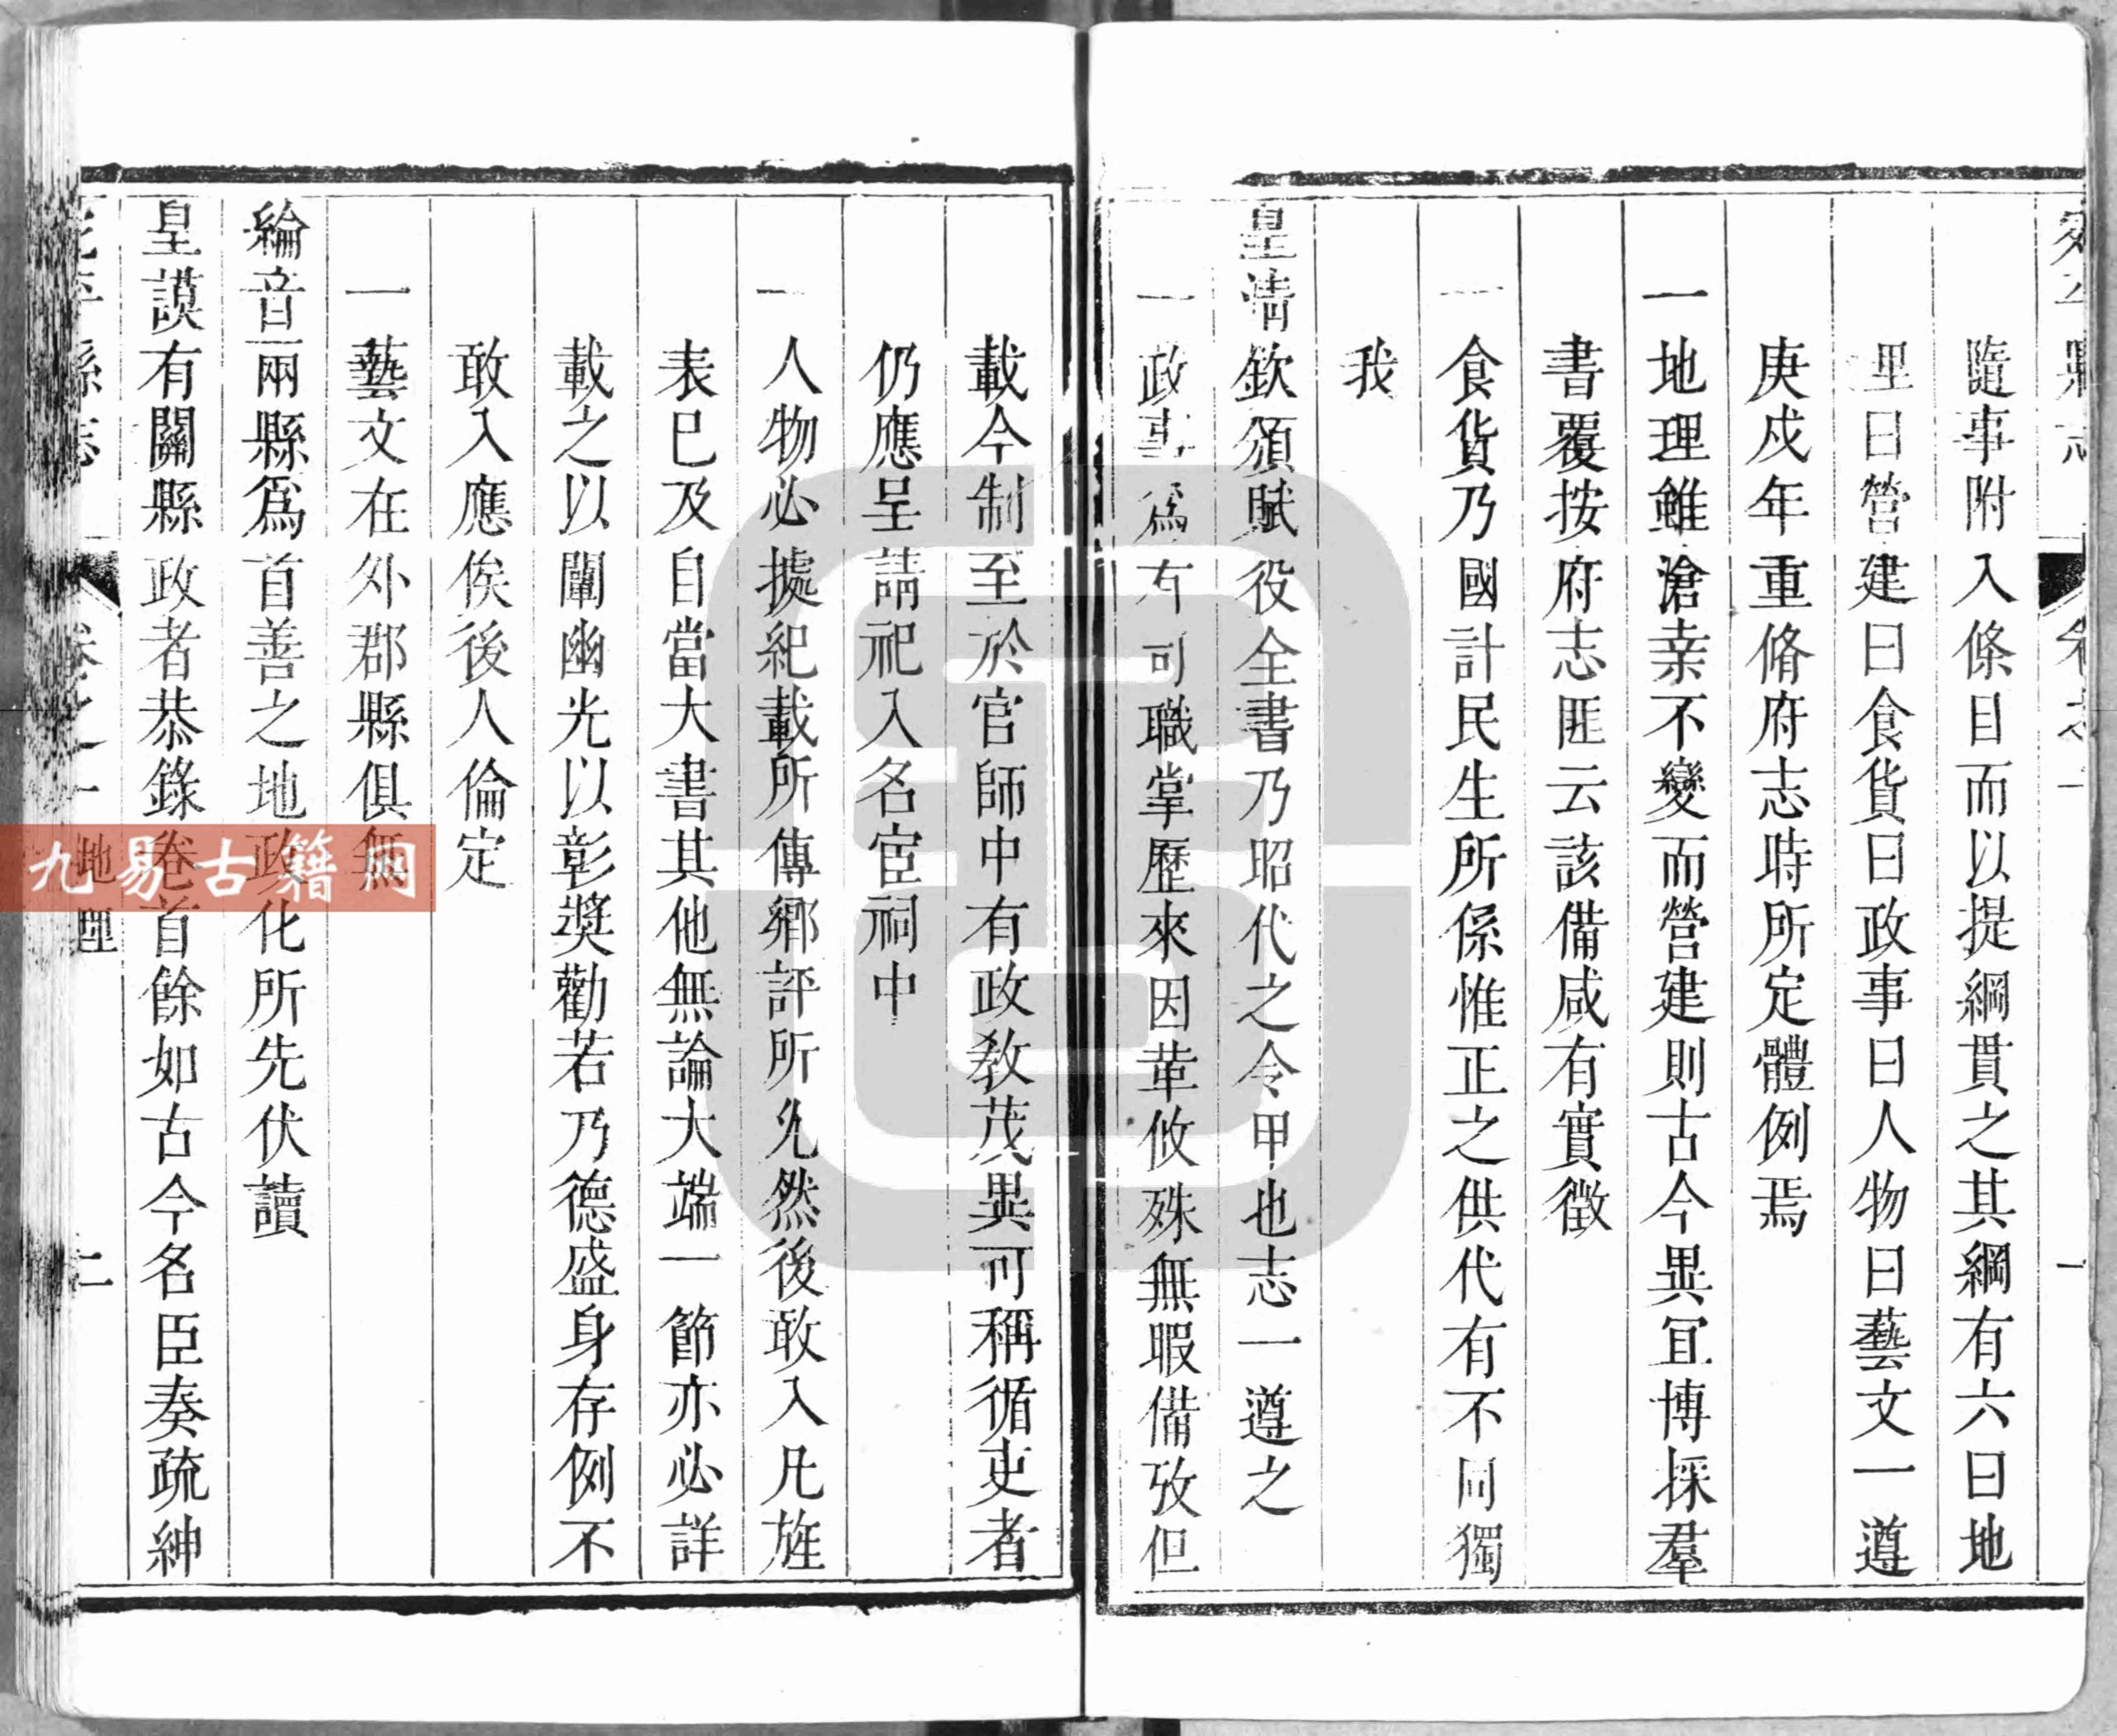 隨事附入條目而以提綱貫之其綱有六曰地
理曰營建曰食貨曰政事曰人物曰藝文一遵
庚戌年重脩府志時所定體例焉
一地理雖滄桒不變而營建則古今異宜博採羣
書覆按府志匪云該備咸有實徵
一食貨乃國計民生所係惟正之供代有不同獨
我
皇淸欽頒賦役全書乃昭代之令甲也志一遵之
一政事爲有司職掌歷來因革攸殊無暇備攷但
載今制至於官師中有政敎茂異可稱循吏者
仍應呈請祀入名宦祠中
一人物必據紀載所傳鄉評所允然後敢入凡旌
表已及自當大書其他無論大端一節亦必詳
載之以闡幽光以彰獎勸若乃德盛身存例不
敢入應俟後人倫定
一藝文在外郡縣俱無
綸音兩縣爲首善之地政化所先伏讀
皇謨有關縣政者恭錄卷首餘如古今名臣奏疏紳
縣志 卷之一 地理 二
九易古籍网